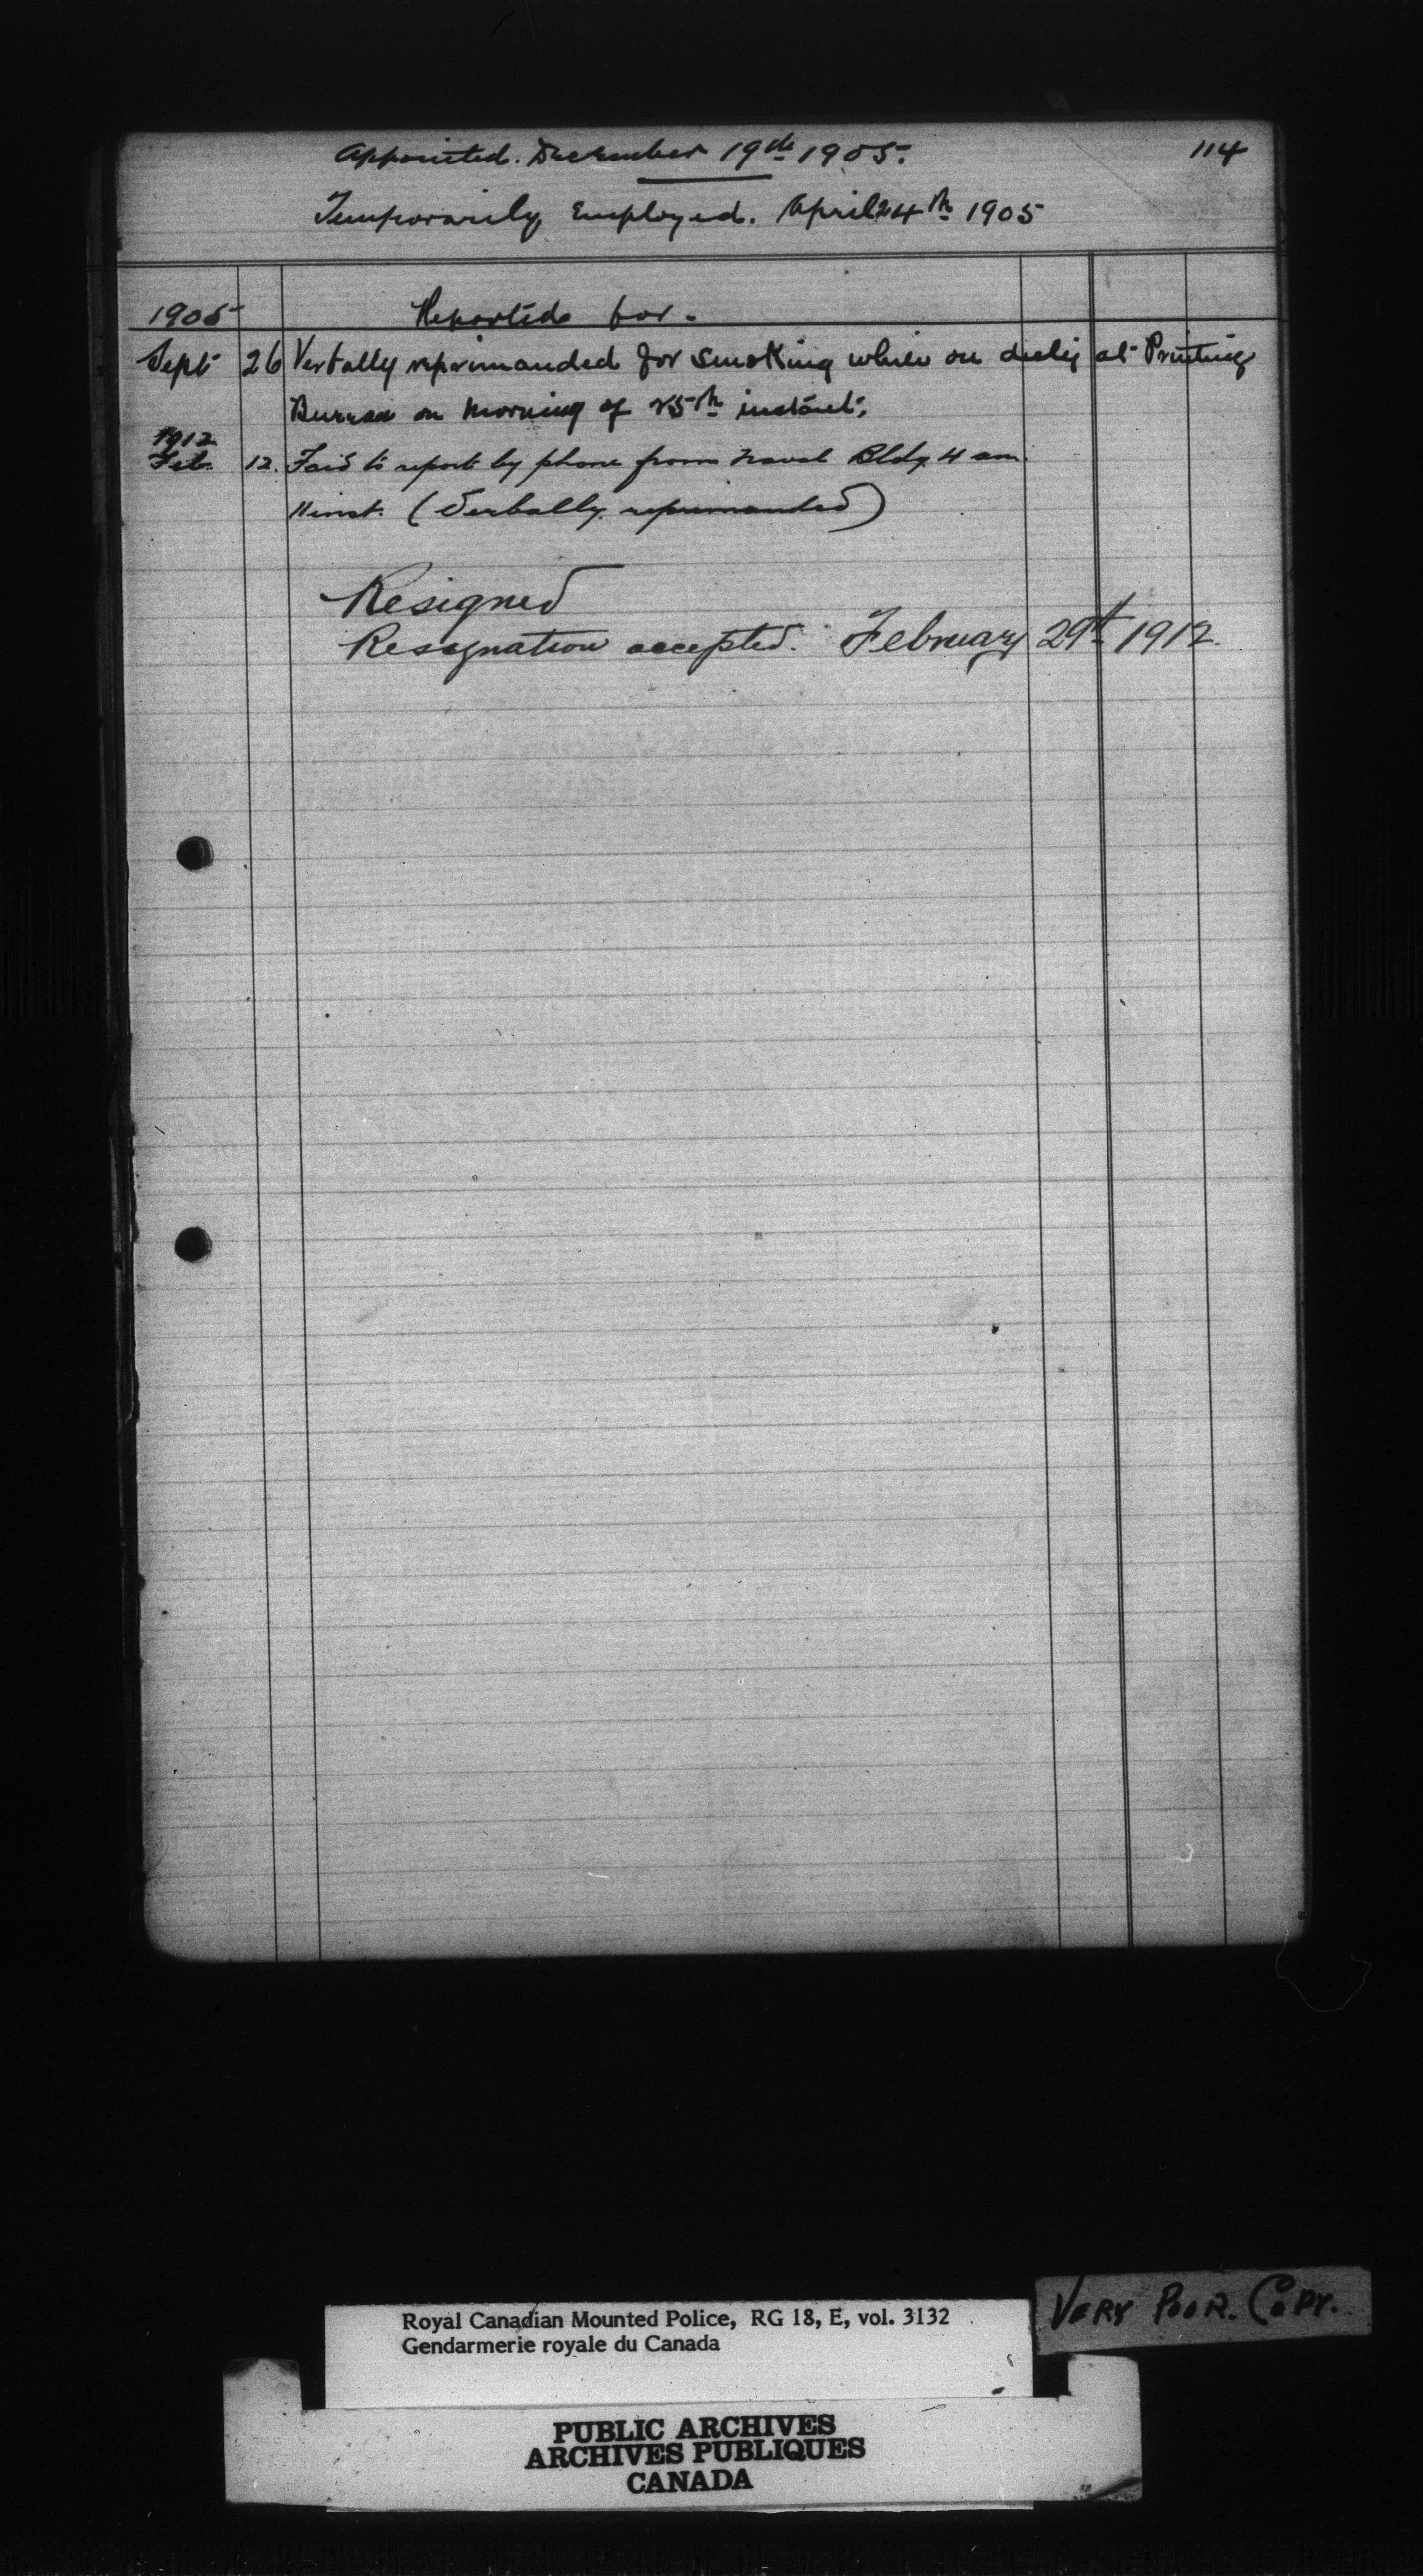 Appointed. December 19th 1905.
114
Temporarily Employed. April 24th 1905
1905 Reported for.
Sept 26 Verbally reprimanded for smoking while on duty at Printing
Bureau on morning of 25th instant.
1912
Feb. 12. Fail to report by phone from Naval Bldg 4 am.
11 inst. (Verbally reprimanded)
Resigned
Resignation accepted. February 29th 1912.
Royal Canadian Mounted Police, RG 18, E, vol. 3132
Gendarmerie royale du Canada
VERY POOR. COPY.
PUBLIC ARCHIVES
ARCHIVES PUBLIQUES
CANADA